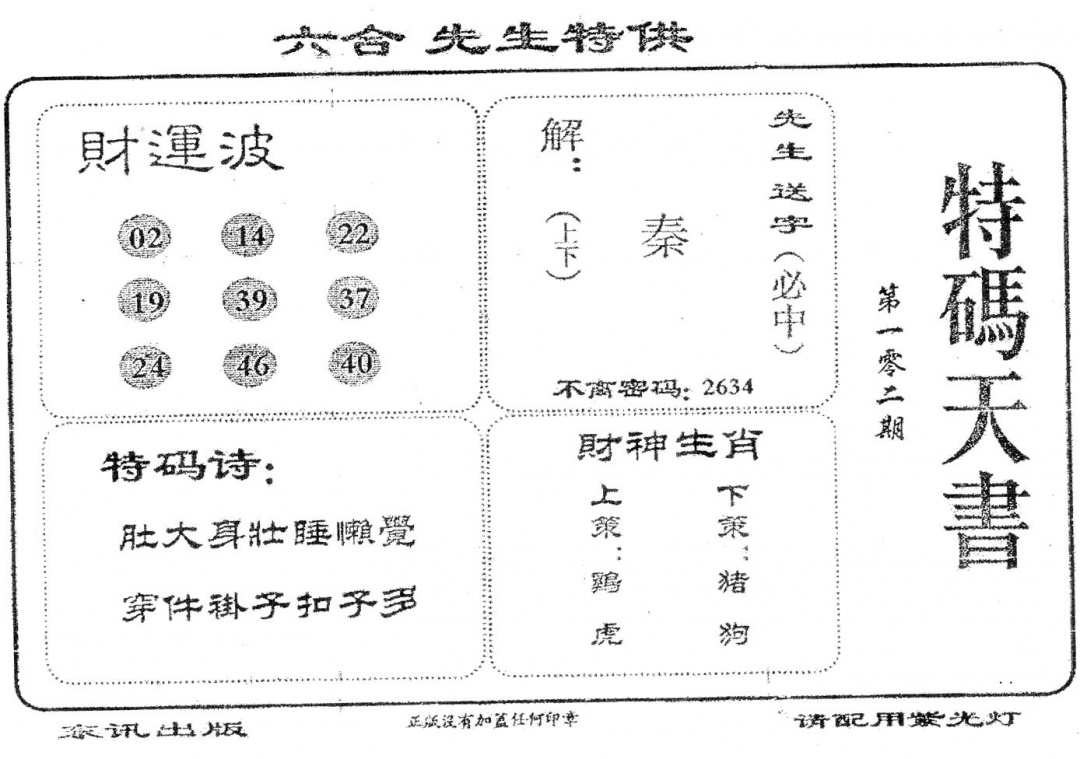 六合 先生特供
財運波
02 14 22
19 39 37
24 46 40
先生送字(必中)
秦
解:(上下)
不离密码: 2634
特码诗:
肚大身壯睡懶覺
穿件褂子扣子多
財神生肖
上策:鷄虎
下策:猪狗
特碼天書
第一零二期
泰讯出版
正版没有加盖任何印章
请配用紫光灯